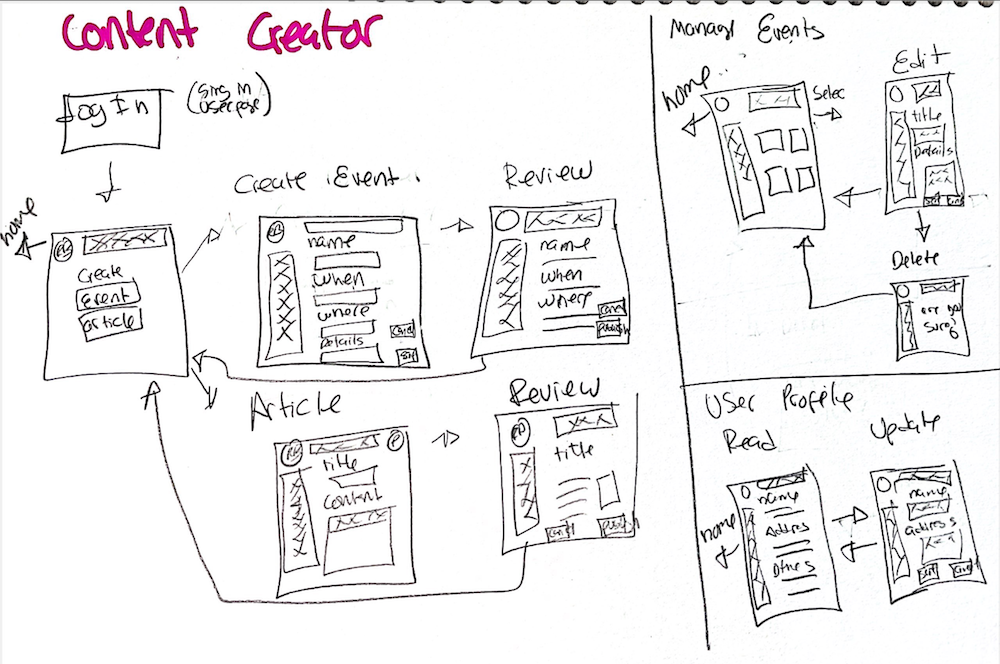 Content Creator
Log In
(Sing in
User page)
home
Create
Event
article
Create Event
name
when
where
Details
Review
name
when
where
publish
Article
title
Content
Review
title
publish
Manage Events
home
Selec
Edit
title
Details
Delete
User Profile
Read
home
name
Address
Others
Update
name
address